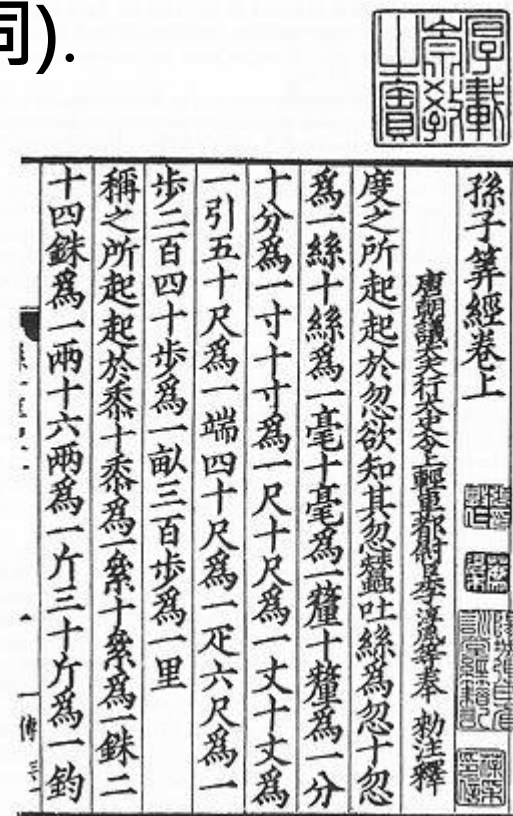 同).
厚載
崇教
之寶
孫子筭經卷上
唐朝議大夫行太史令上輕車都尉臣李淳風等奉 勑注釋
度之所起起於忽欲知其忽蠶吐絲為忽十忽
為一絲十絲為一毫十毫為一釐十釐為一分
十分為一寸十寸為一尺十尺為一丈十丈為
一引五十尺為一端四十尺為一疋六尺為一
步二百四十步為一畝三百步為一里
稱之所起起於黍十黍為一絫十絫為一銖二
十四銖為一兩十六兩為一斤三十斤為一鈞